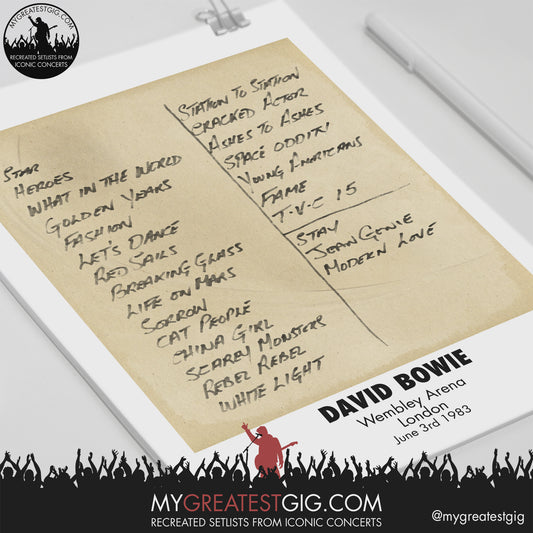 MYGREATESTGIG.COM
RECREATED SETLISTS FROM
ICONIC CONCERTS
STAR
HEROES
WHAT IN THE WORLD
GOLDEN YEARS
FASHION
LET'S DANCE
RED SAILS
BREAKING GLASS
LIFE ON MARS
SORROW
CAT PEOPLE
CHINA GIRL
SCAREY MONSTERS
REBEL REBEL
WHITE LIGHT
STATION TO STATION
CRACKED ACTOR
ASHES TO ASHES
SPACE ODDITY
YOUNG AMERICANS
FAME
T-V-C 15
STAY
JEAN GENIE
MODERN LOVE
DAVID BOWIE
Wembley Arena
London
June 3rd 1983
MYGREATESTGIG.COM
RECREATED SETLISTS FROM ICONIC CONCERTS
@mygreatestgig